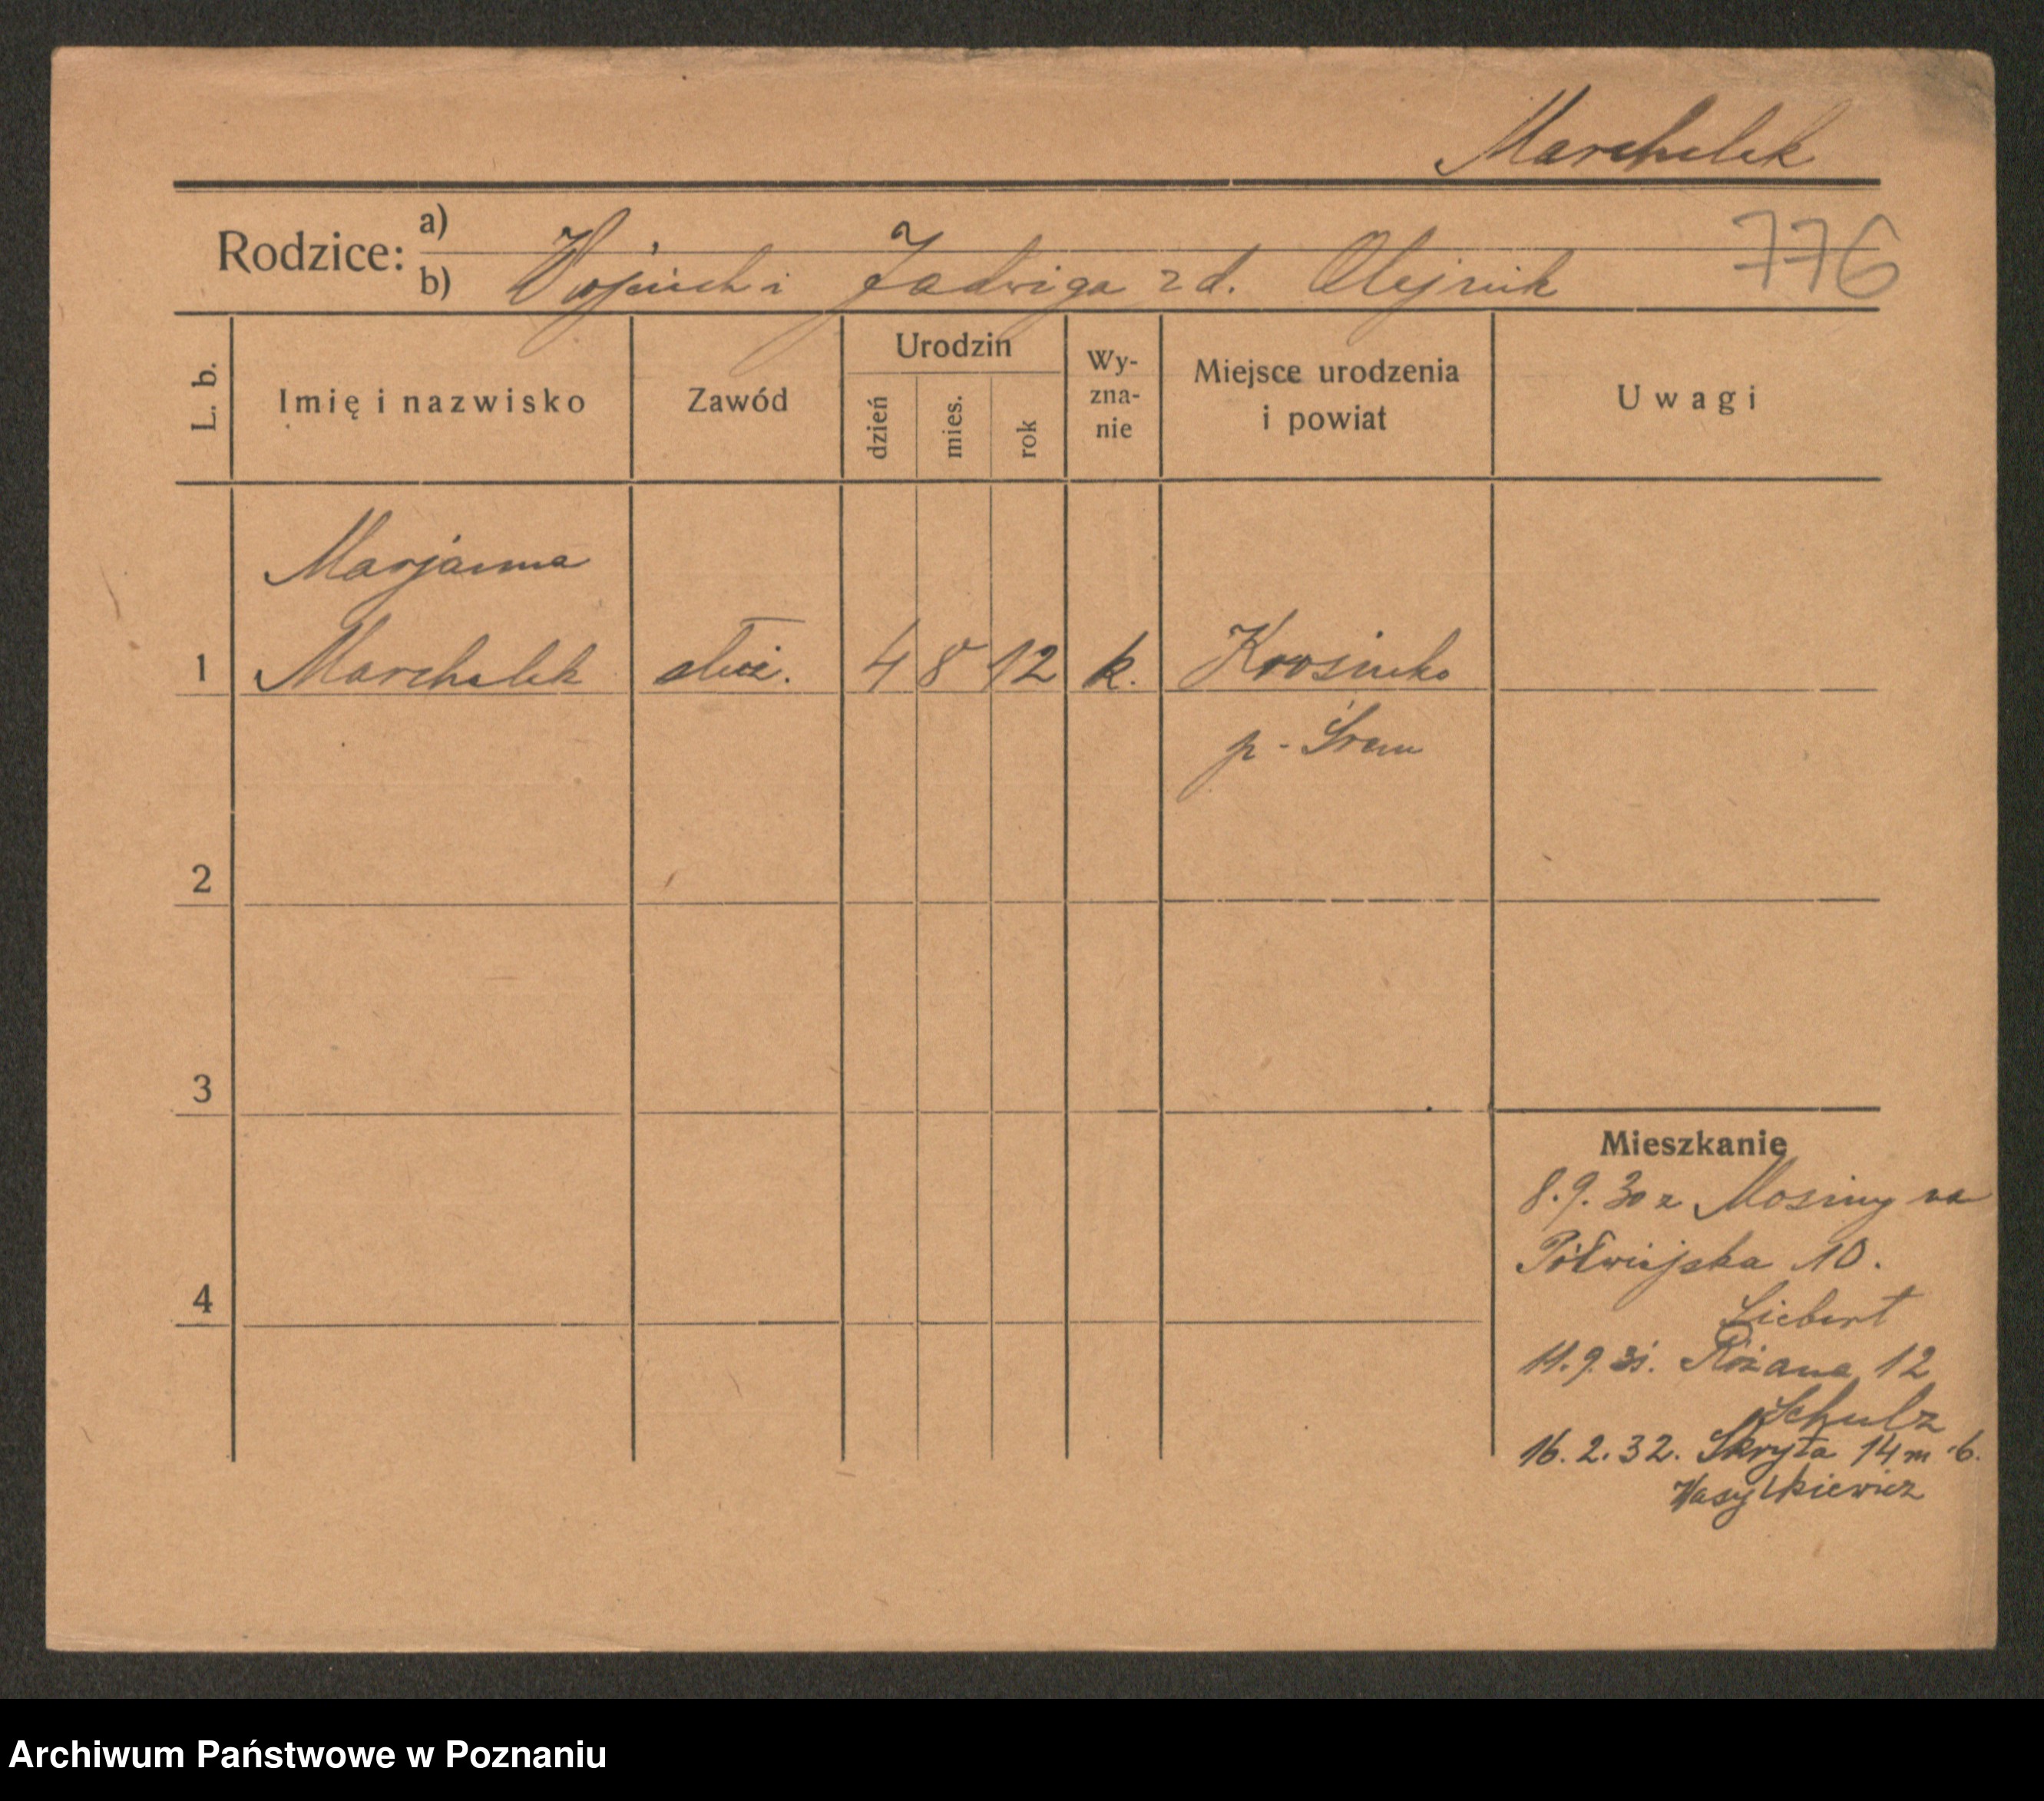 Marchelek
Rodzice: a)
b) Wojciech i Jadwiga z d. Olejnik
776
L. b.
Imię i nazwisko
Zawód
Urodzin
dzień
mies.
rok
Wy-
zna-
nie
Miejsce urodzenia
i powiat
Uwagi
Marjanna
1 Marchelek służ. 4 8 12 k. Krosinko
p. Śrem
2
3
4
Mieszkanie
8.9.30 z Mosiny na
Półwiejska 10.
Liebert
11.9.31. Różana 12
Schulz
16.2.32. Skryta 14 m 6.
Wasylkiewicz
Archiwum Państwowe w Poznaniu